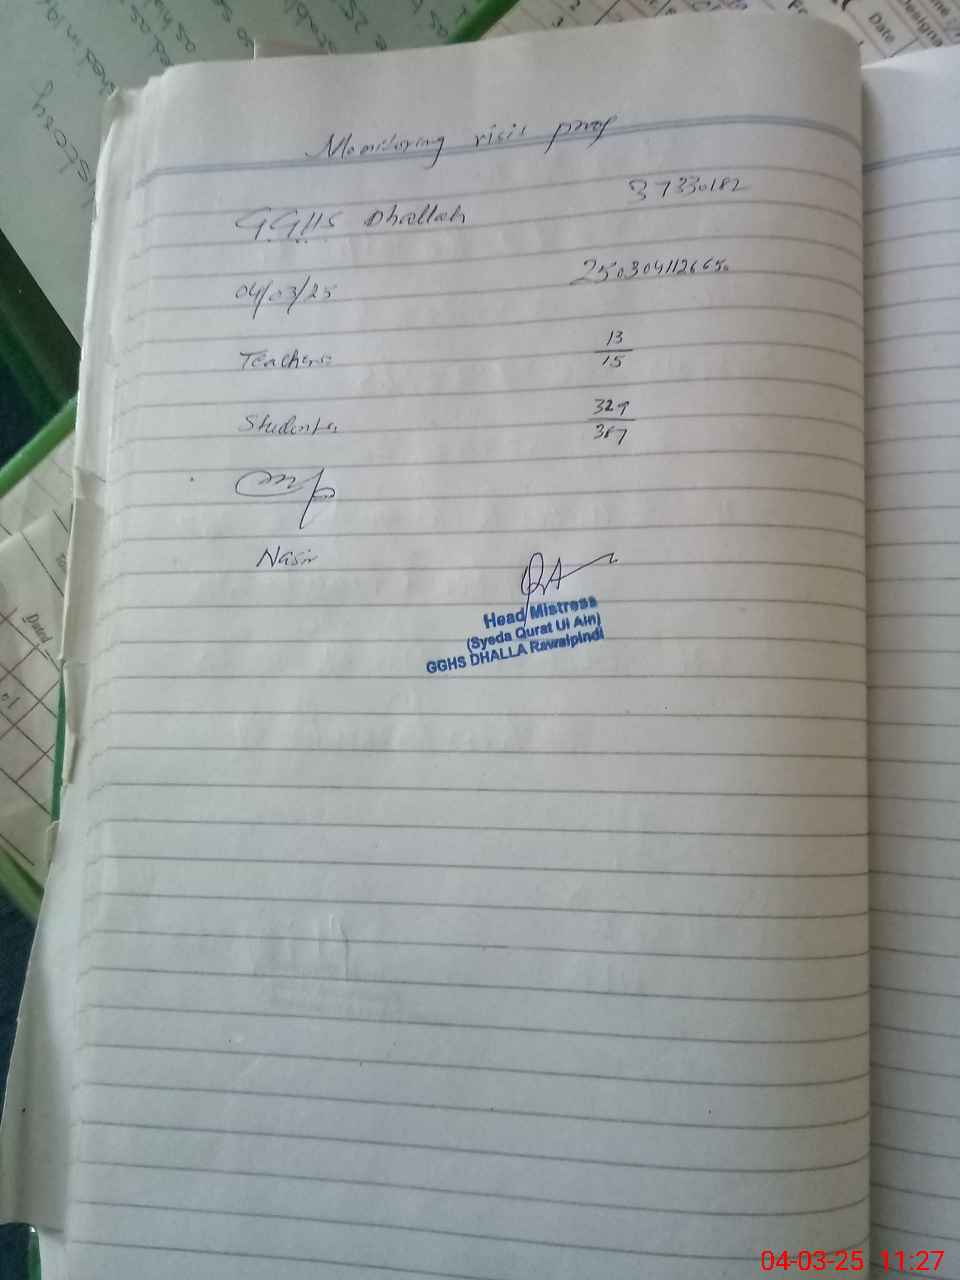 Monitoring visit proof
G.G.H.S Dhallah 37330182
04/03/25 250304112665
Teachers 13/15
Students 329/387
Nasir
Head Mistress
(Syeda Qurat Ul Ain)
GGHS DHALLA Rawalpindi
Date
Designa
Dated
04-03-25 11:27